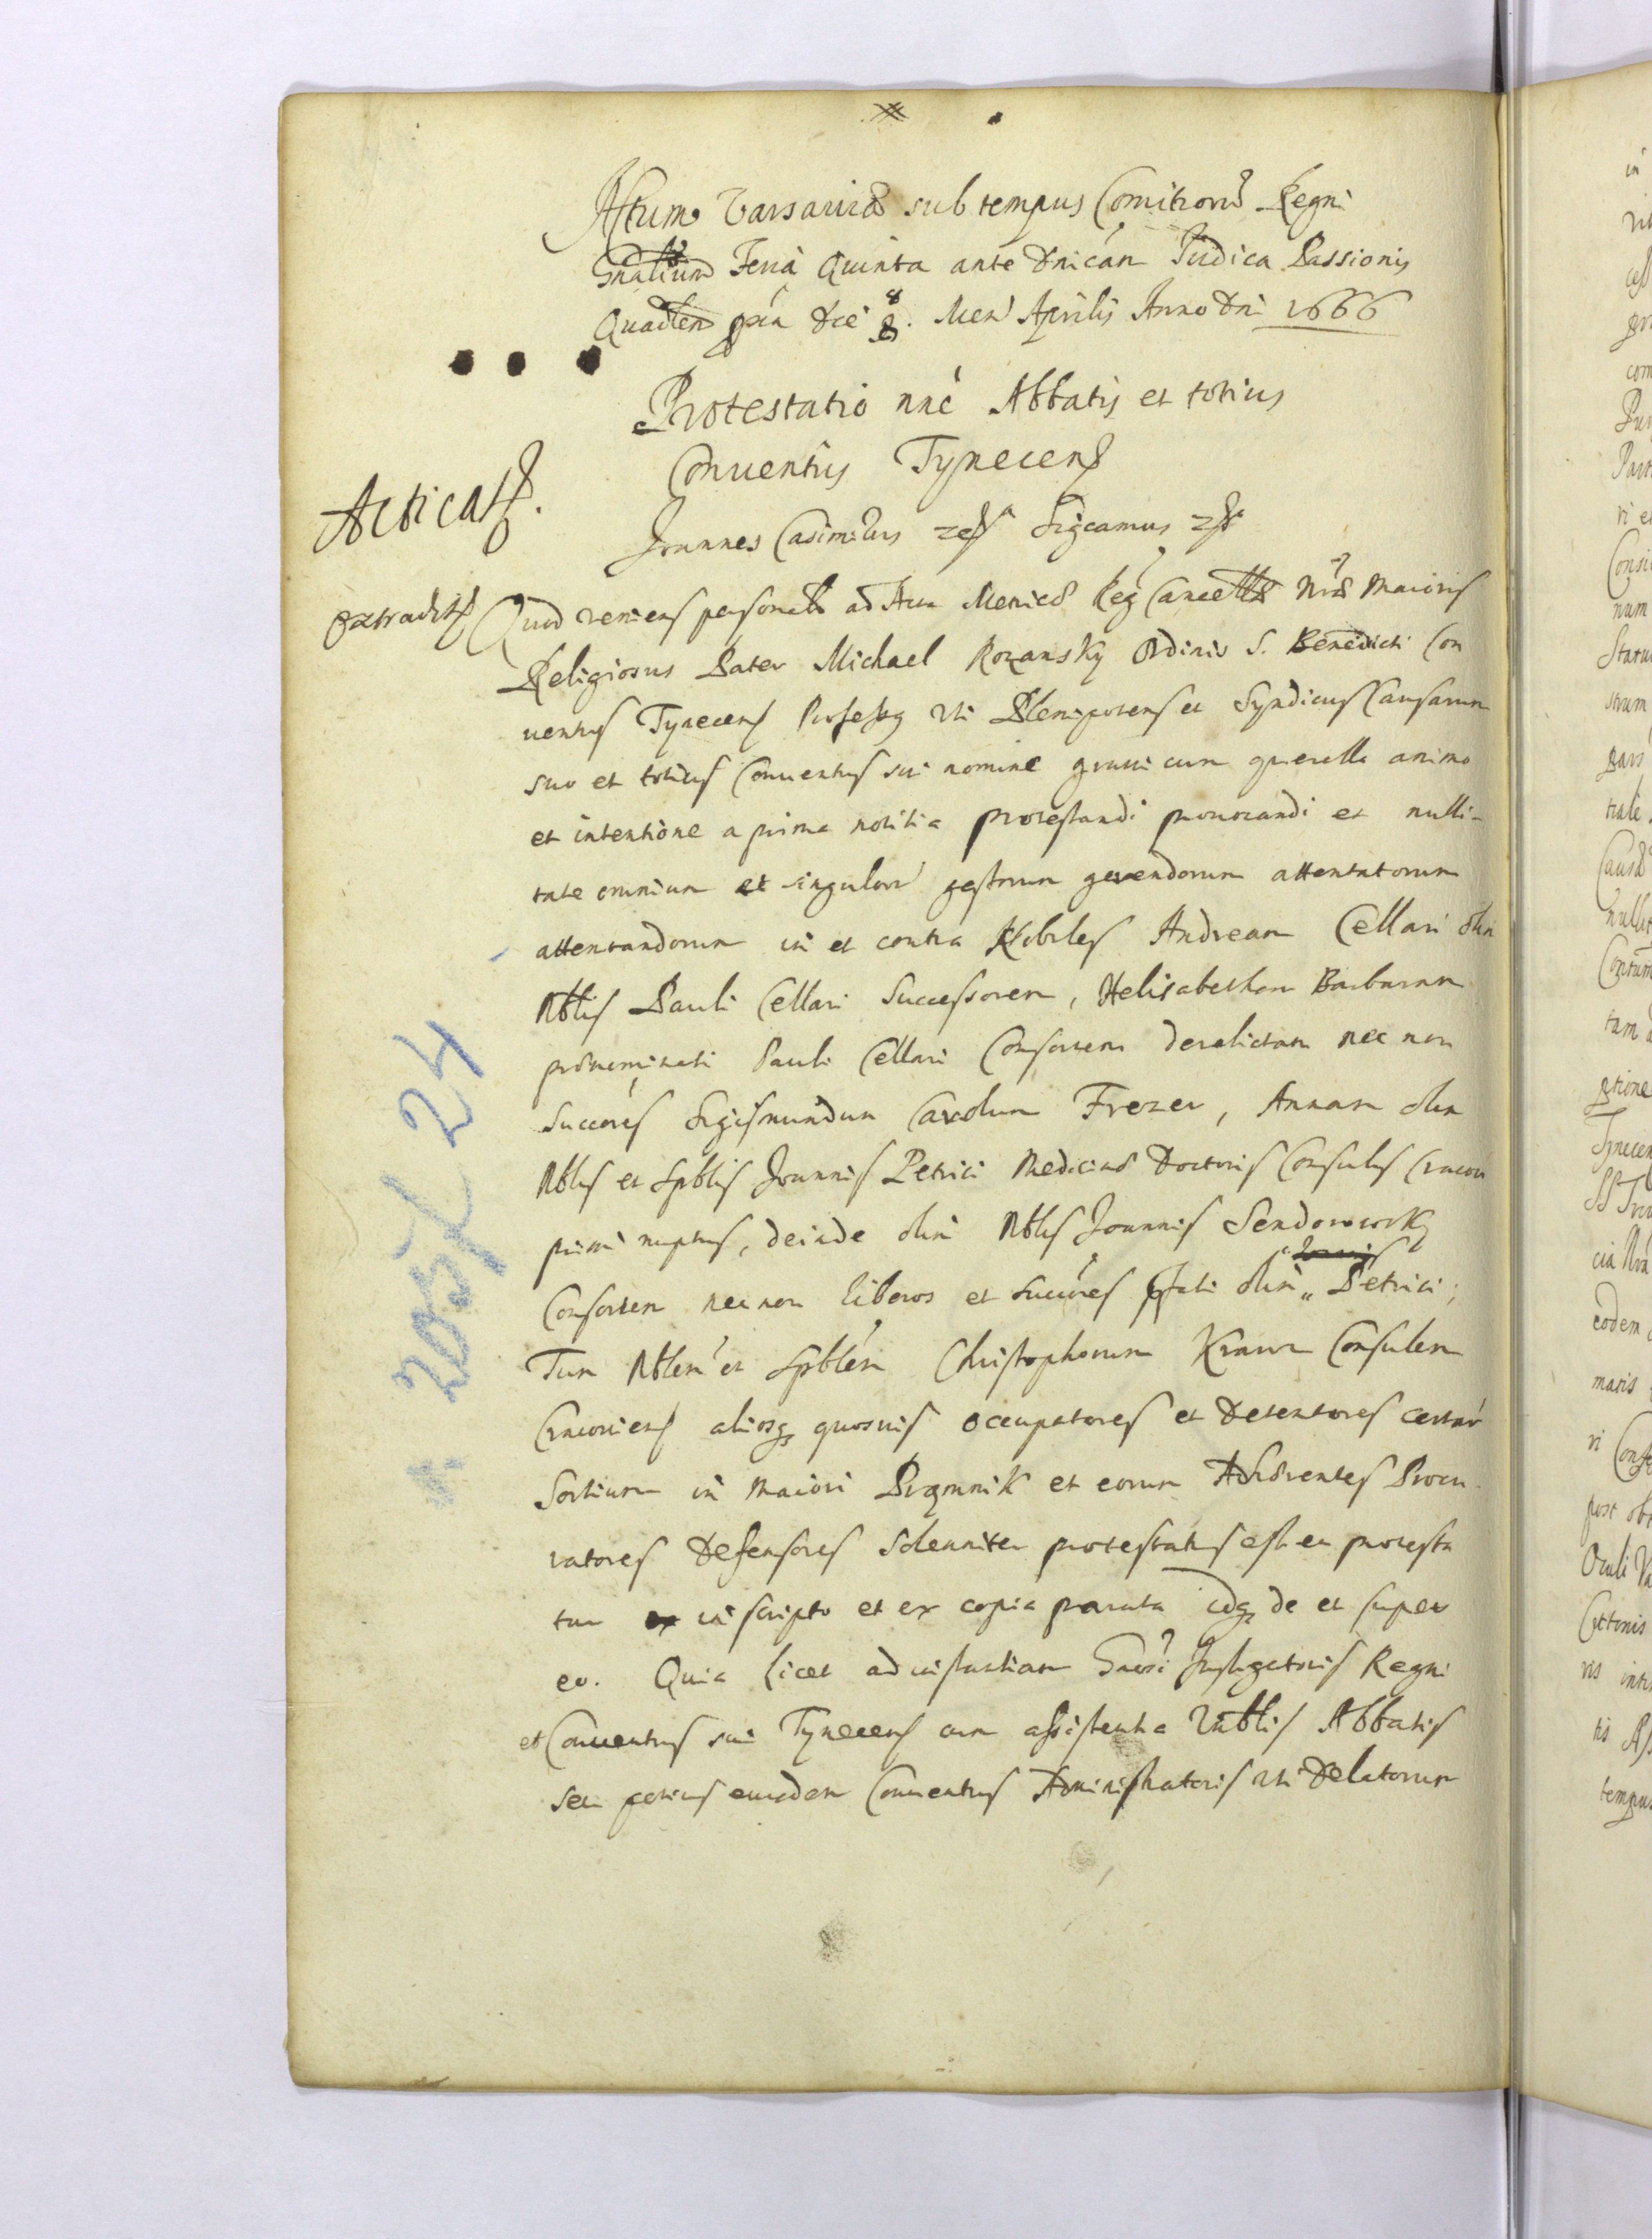 Actum Varsaviæ sub tempus Comitiorũ Regni
Gnãlium Feria Quinta ante Dnicam Judica Passionis
Quadlem pxa die 8. Men Aprilis Anno Dni 1666
Protestatio nne Abbatis et totius
Conventus Tynecens
Acticats.
Joannes Casimirus etc Sigcamus etc
extradits
Quod veniens personalr ad Acta Metrices Reg Cancellæ Nræ Maioris
Religiosus Pater Michael Rozansky Ordinis S. Benedicti Con
ventus Tynecens Professg uti Plenipotens et Syndicus Causarum
suo et totius Conventus sui nomine gravi cum querella animo
et intentione a prima notitia protestandi provocandi et nulli-
tate omnium et singulorr gestorum gerendorum attentatorum
attentandorum in et contra Nobiles Andream Cellari olim
Nblis Pauli Cellari Successorem, Helisabetham Barbaram
prænominati Pauli Cellari Consortem derelictam nec non
Succores Sigismundum Carolum Frezer, Annam olim
Nblis et Spblis Joannis Petrici Medicinæ Doctoris Consulis Cracovi
primi nuptus, deinde olim Nblis Joannis Sendorowsky
Consortem nec non liberos et Succores pfati olim " Petrici;
Tum Nblem et Spblem Christophorum Krauz Consulem
Cracoviens aliosq quosvis occupatores et Detentores certar
Sortium in Maiori Prqmnik et eorum Adhærentes Procu
ratores Defensores solenniter protestatus est et protesta
tur in scripto et ex copia parata idq de et super
eo. Quia licet ad instantiam Gnrosi Instigatoris Regni
et Conventus sui Tynecens cum assistentia Vnblis Abbatis
seu potius eiusdem Conventus Administratoris uti Delatorum
24